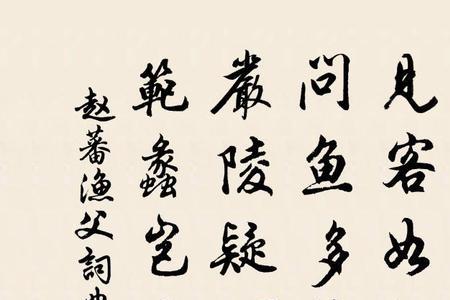 見客如
問鱼多
嚴陵疑
範蠡豈
赵蕃漁父詞